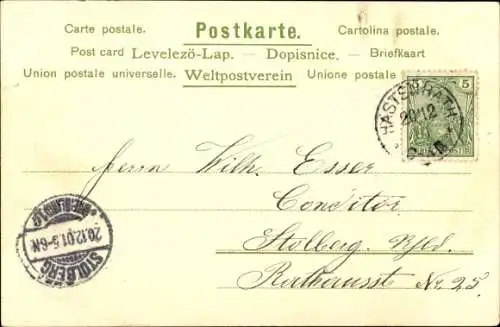 Carte postale. Postkarte. Cartolina postale.
Post card Levelező-Lap. — Dopisnice. — Briefkaart
Union postale universelle. Weltpostverein Unione postale
5
HASTENRATH
20/12
Herrn Wilh. Esser
Conditor
Stolberg. Rhld.
Rathausstr Nr. 25.
STOLBERG
20.12.01.5-6N